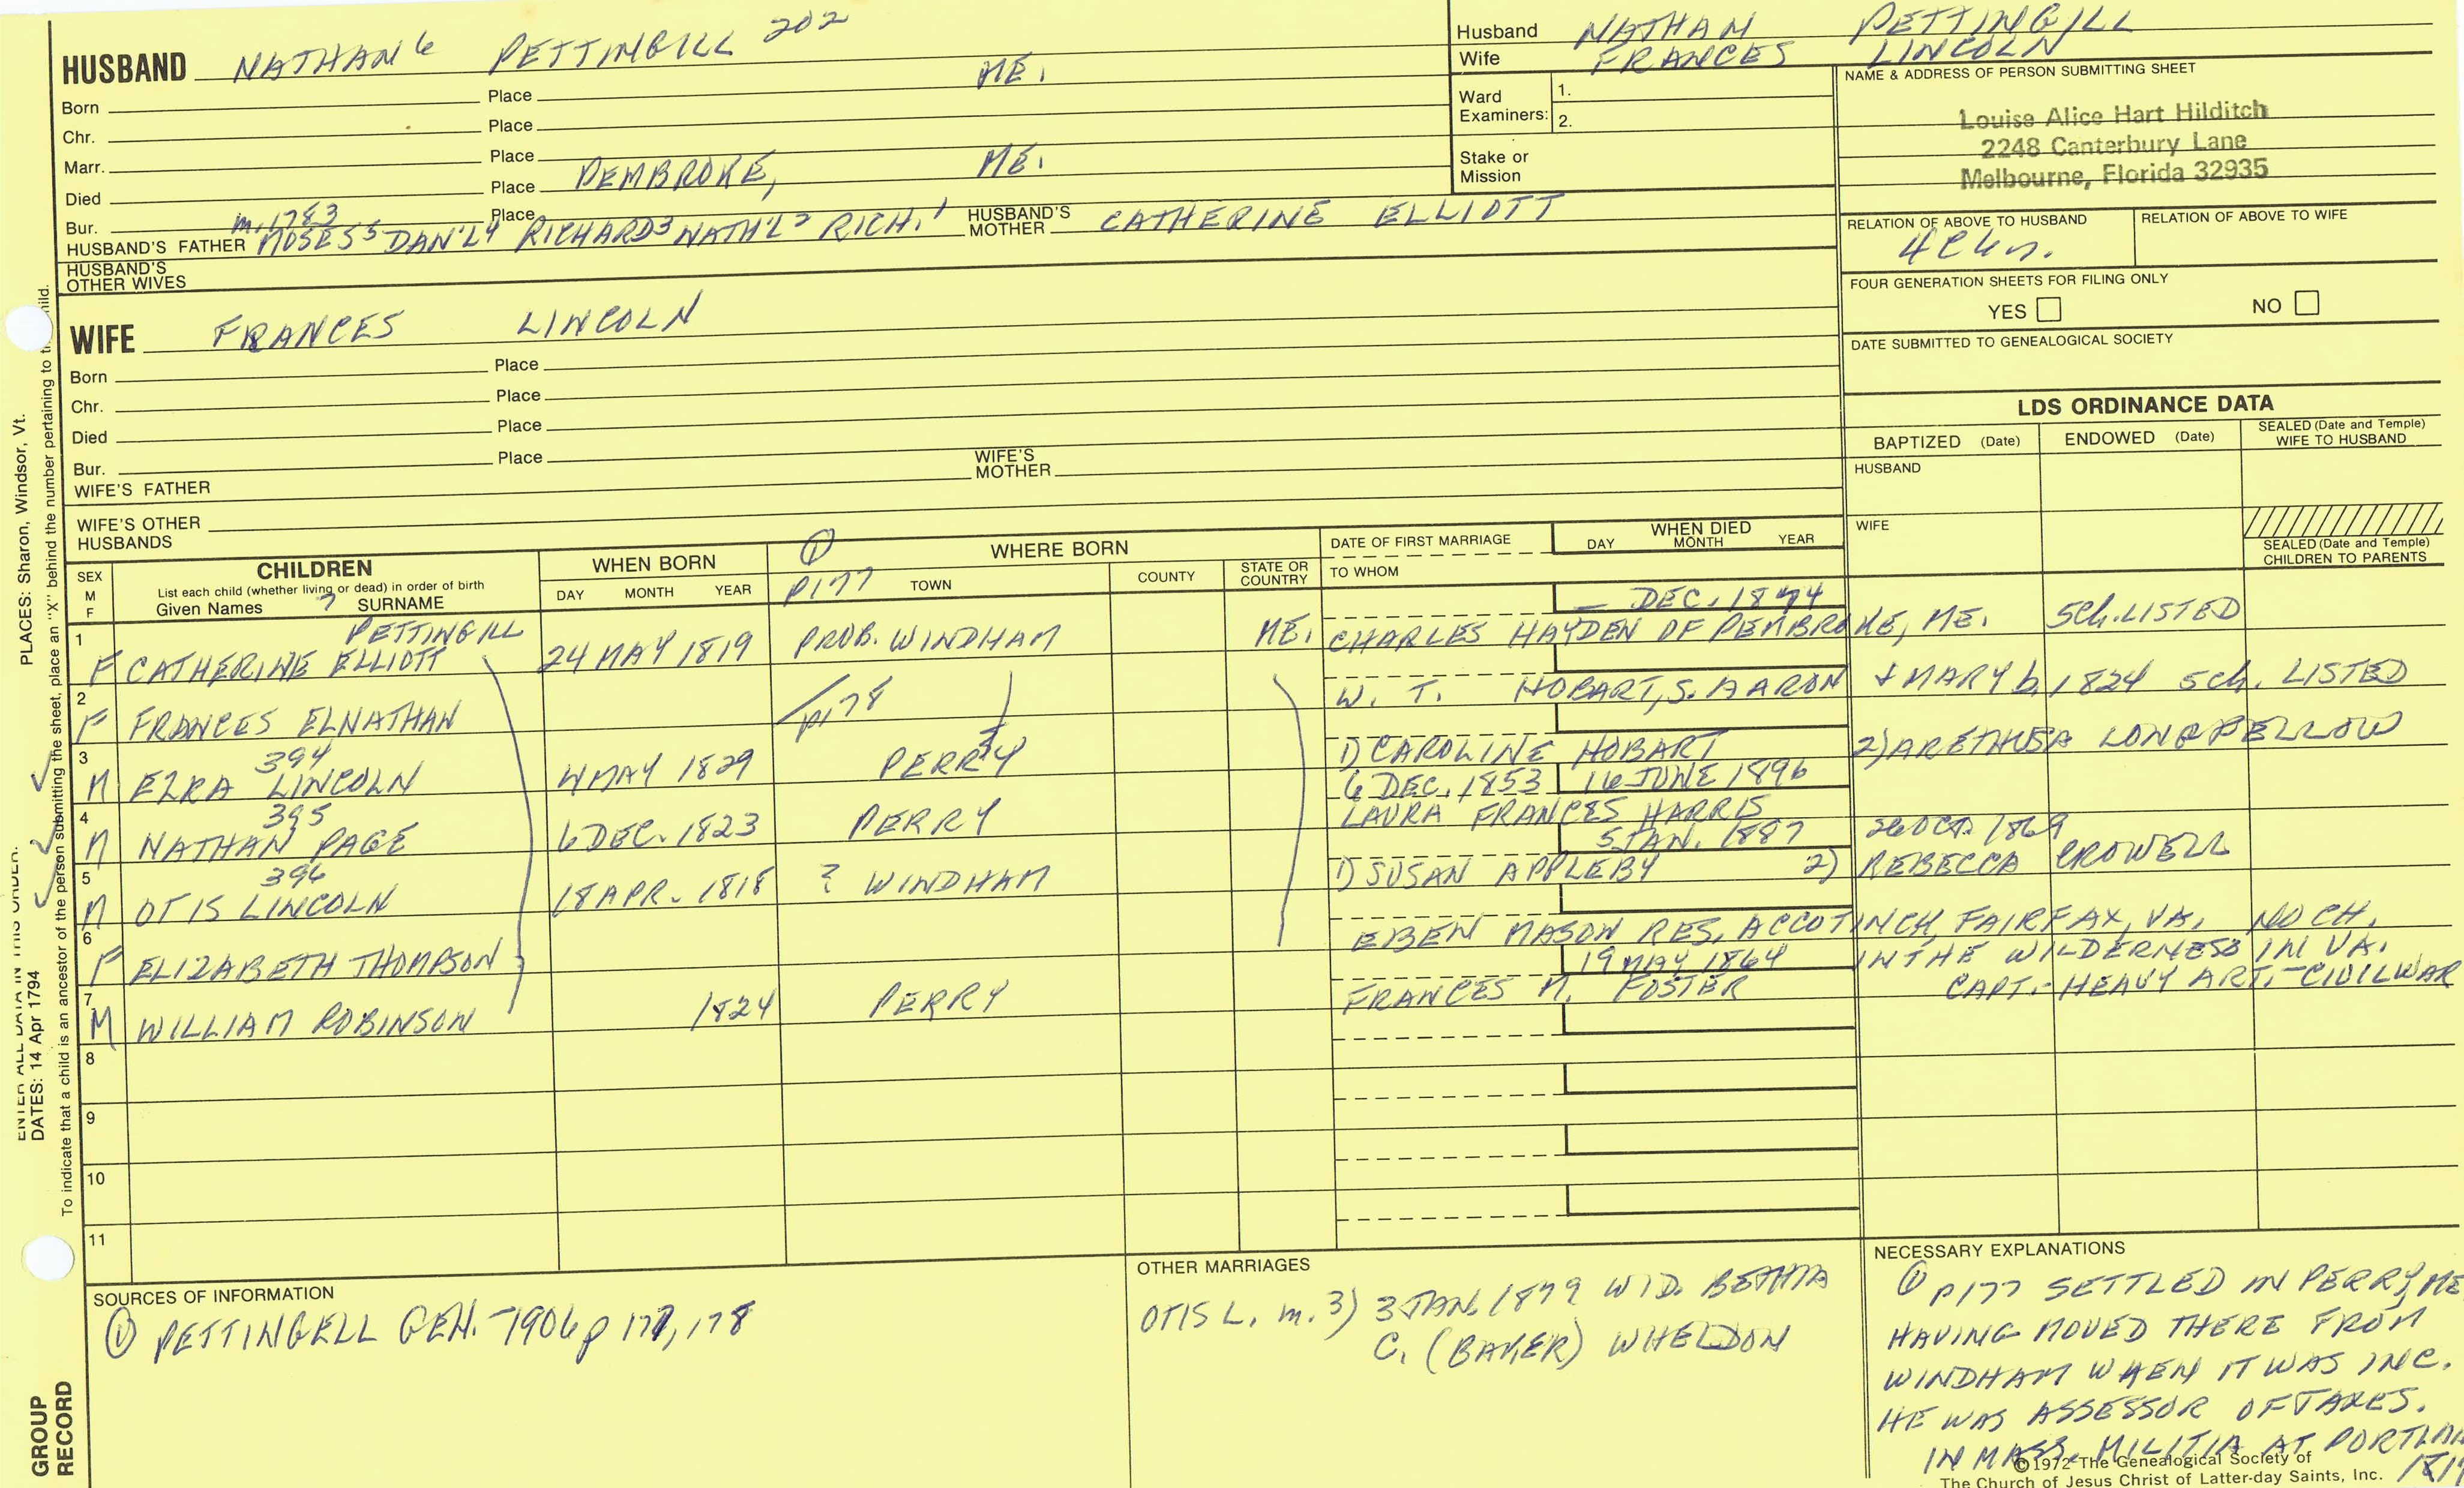 HUSBAND NATHAN 6 PETTINGILL 202
Born Place ME.
Chr. Place
Marr. Place
Died Place PEMBROKE, ME.
Bur. Place
m. 1783
HUSBAND'S FATHER MOSES 5 DAN'L 4 RICHARD 3 NATH'L 2 RICH. 1 HUSBAND'S MOTHER CATHERINE ELLIOTT
HUSBAND'S OTHER WIVES
WIFE FRANCES LINCOLN
Born Place
Chr. Place
Died Place
Bur. Place
WIFE'S FATHER WIFE'S MOTHER
WIFE'S OTHER HUSBANDS
Husband NATHAN PETTINGILL
Wife FRANCES LINCOLN
Ward Examiners: 1.
2.
Stake or Mission
NAME & ADDRESS OF PERSON SUBMITTING SHEET
Louise Alice Hart Hilditch
2248 Canterbury Lane
Melbourne, Florida 32935
RELATION OF ABOVE TO HUSBAND RELATION OF ABOVE TO WIFE
FOUR GENERATION SHEETS FOR FILING ONLY
YES NO
DATE SUBMITTED TO GENEALOGICAL SOCIETY
LDS ORDINANCE DATA
BAPTIZED (Date) ENDOWED (Date) SEALED (Date and Temple) WIFE TO HUSBAND
HUSBAND
WIFE
SEALED (Date and Temple) CHILDREN TO PARENTS
SEX M F
CHILDREN
List each child (whether living or dead) in order of birth
Given Names 7 SURNAME
WHEN BORN
DAY MONTH YEAR
① P177
WHERE BORN
TOWN COUNTY STATE OR COUNTRY
DATE OF FIRST MARRIAGE
TO WHOM
WHEN DIED
DAY MONTH YEAR
— DEC. 1874
PETTINGILL
1 F CATHERINE ELLIOTT 24 MAY 1819 PROB. WINDHAM ME. CHARLES HAYDEN OF PEMBROKE, ME. 5 Ch. LISTED
2 F FRANCES ELNATHAN p178 W. T. HOBART, S. AARON + MARY b. 1824 5 ch. LISTED
394
3 M EZRA LINCOLN 4 MAY 1829 PERRY 1) CAROLINE HOBART 2) ARETHUSA LONGFELLOW
6 DEC. 1853 16 JUNE 1896
395
4 M NATHAN PAGE 6 DEC. 1823 PERRY LAURA FRANCES HARRIS
5 JAN. 1887 26 OCT. 1869
396
5 M OTIS LINCOLN 18 APR. 1818 ? WINDHAM 1) SUSAN APPLEBY 2) REBECCA CROWELL
6 F ELIZABETH THOMPSON EBEN MASON RES. ACCOTINCH, FAIRFAX, VA. NO CH.
19 MAY 1864 IN THE WILDERNESS IN VA.
7 M WILLIAM ROBINSON 1824 PERRY FRANCES M. FOSTER CAPT. - HEAVY ART. - CIVIL WAR
8
9
10
11
SOURCES OF INFORMATION
① PETTINGELL GEN. - 1906 p 177, 178
OTHER MARRIAGES
OTIS L. m. 3) 3 JAN. 1879 WID. BETHIA
C. (BAKER) WHELDON
NECESSARY EXPLANATIONS
① P177 SETTLED IN PERRY, ME
HAVING MOVED THERE FROM
WINDHAM WHEN IT WAS INC.
HE WAS ASSESSOR OF TAXES.
IN MASS. MILITIA AT PORTLAN
©1972 The Genealogical Society of
The Church of Jesus Christ of Latter-day Saints, Inc.
PLACES: Sharon, Windsor, Vt.
ENTER ALL DATA IN THIS ORDER:
DATES: 14 Apr 1794
To indicate that a child is an ancestor of the person submitting the sheet, place an "X" behind the number pertaining to child.
GROUP RECORD